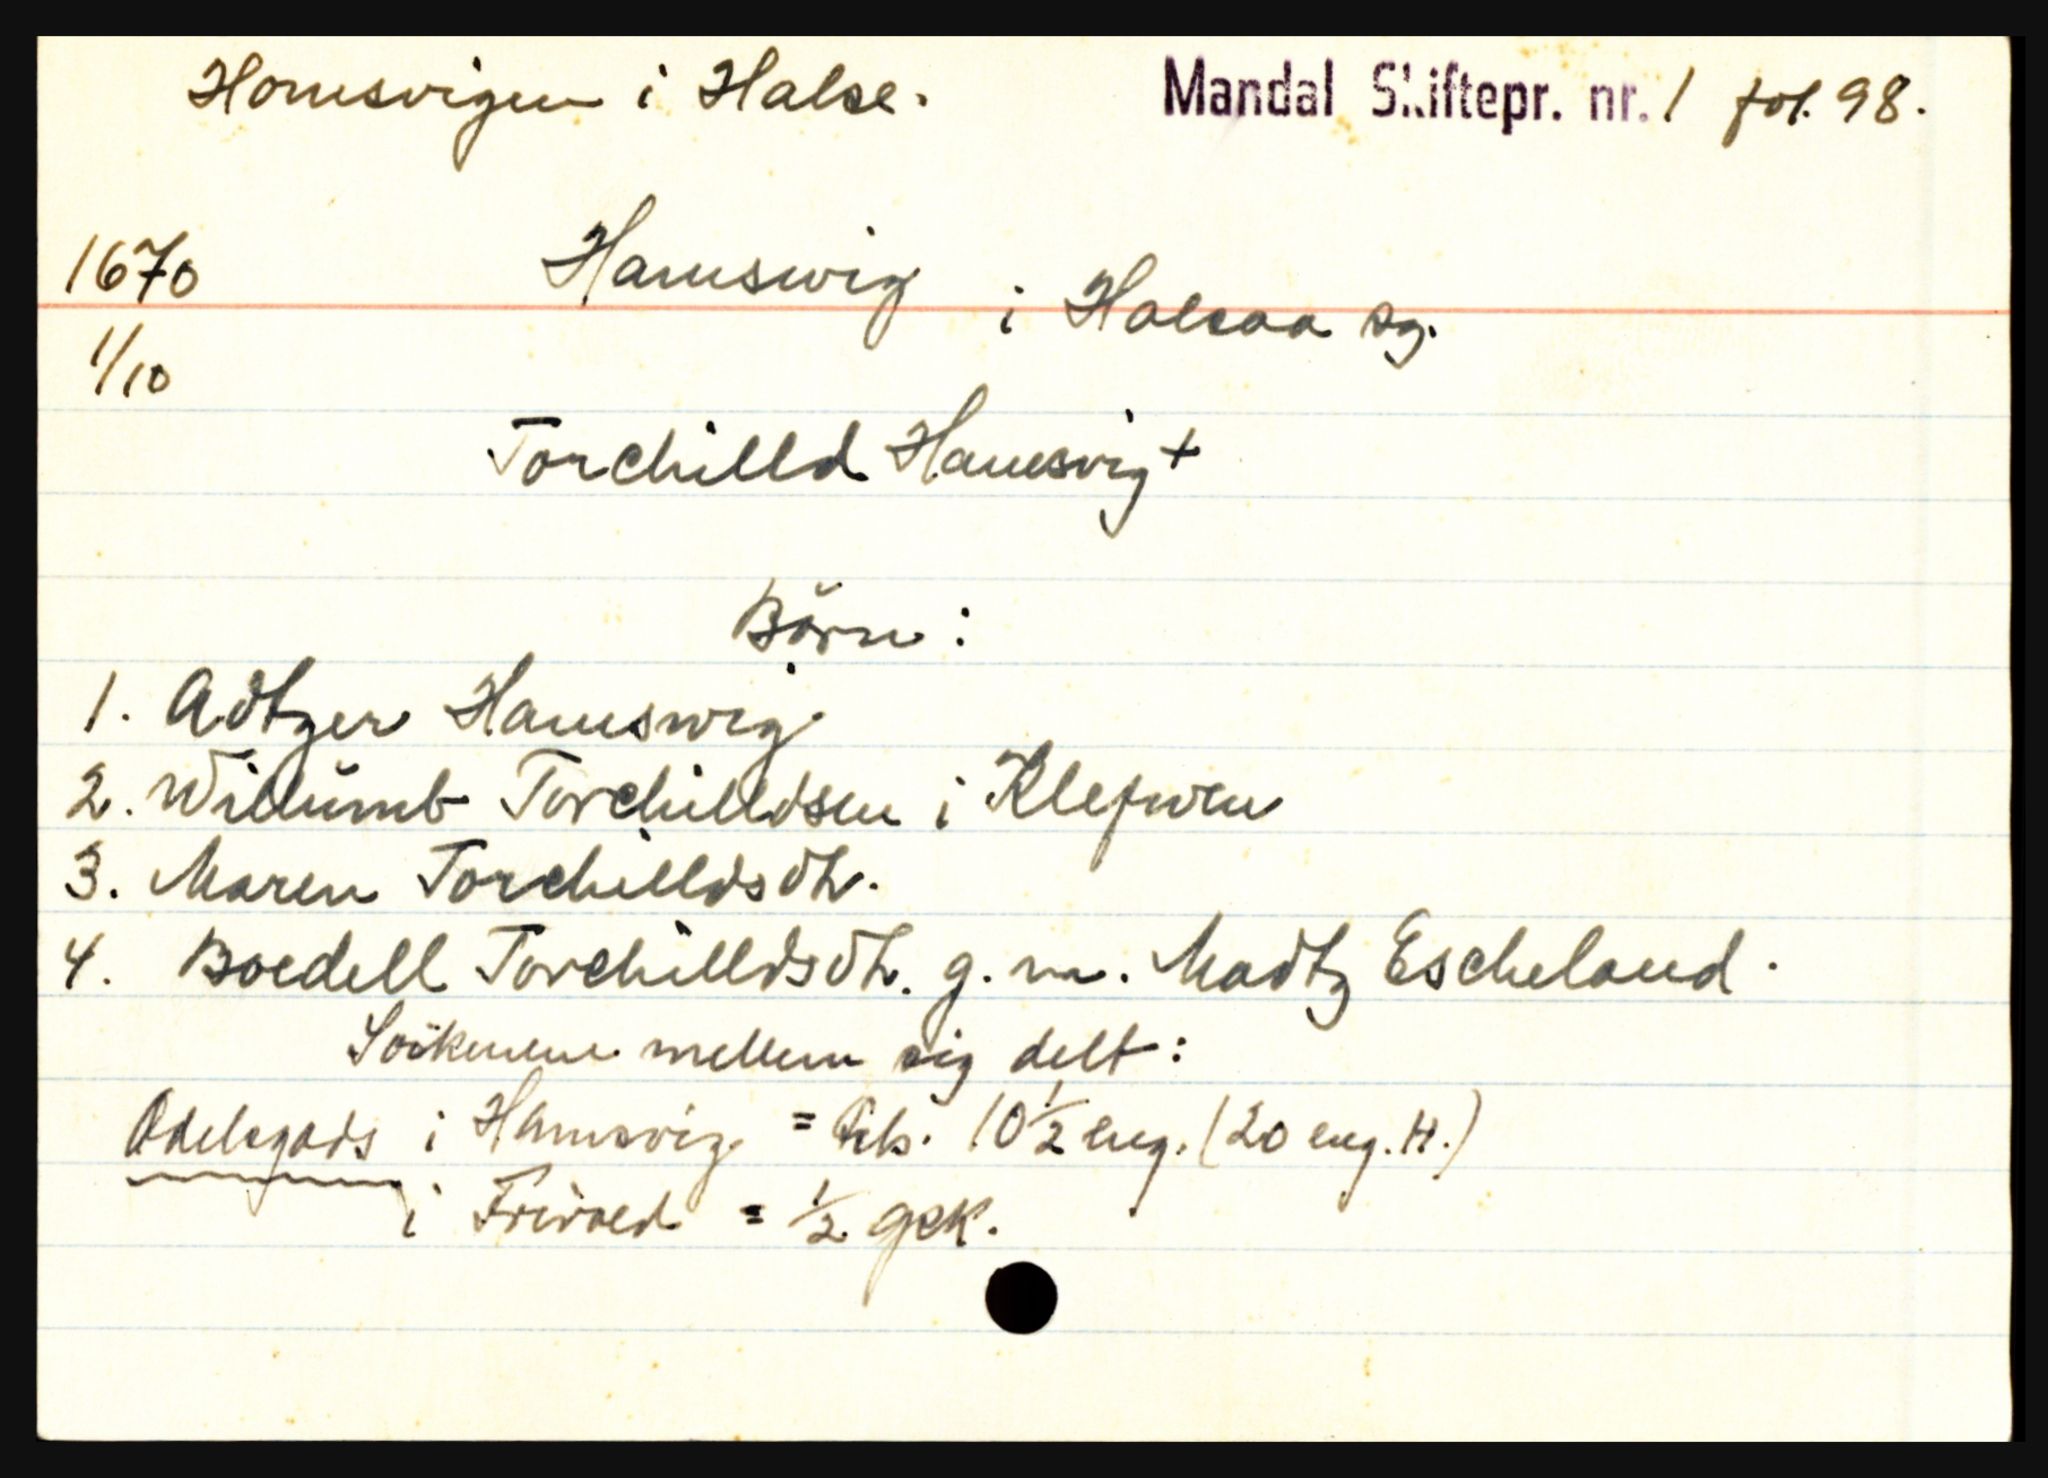 Homsvigen i Halse. Mandal Skiftepr. nr. 1 fol. 98.
1670 Hamswig i Halsaa sg.
1/10
Torchilld Hamsvig +
Börn:
1. Adtzer Hamswig
2. Willumb Torchilldsen i Klefwen
3. Maren Torchilldsdtr.
4. Boedell Torchilldsdtr. g. m. Madtz Escheland.
Söskenene mellem sig delt:
Odelsgods i Hamsvig = 10 1/2 eng. (20 eng. H.)
i = 1/2 gsk.